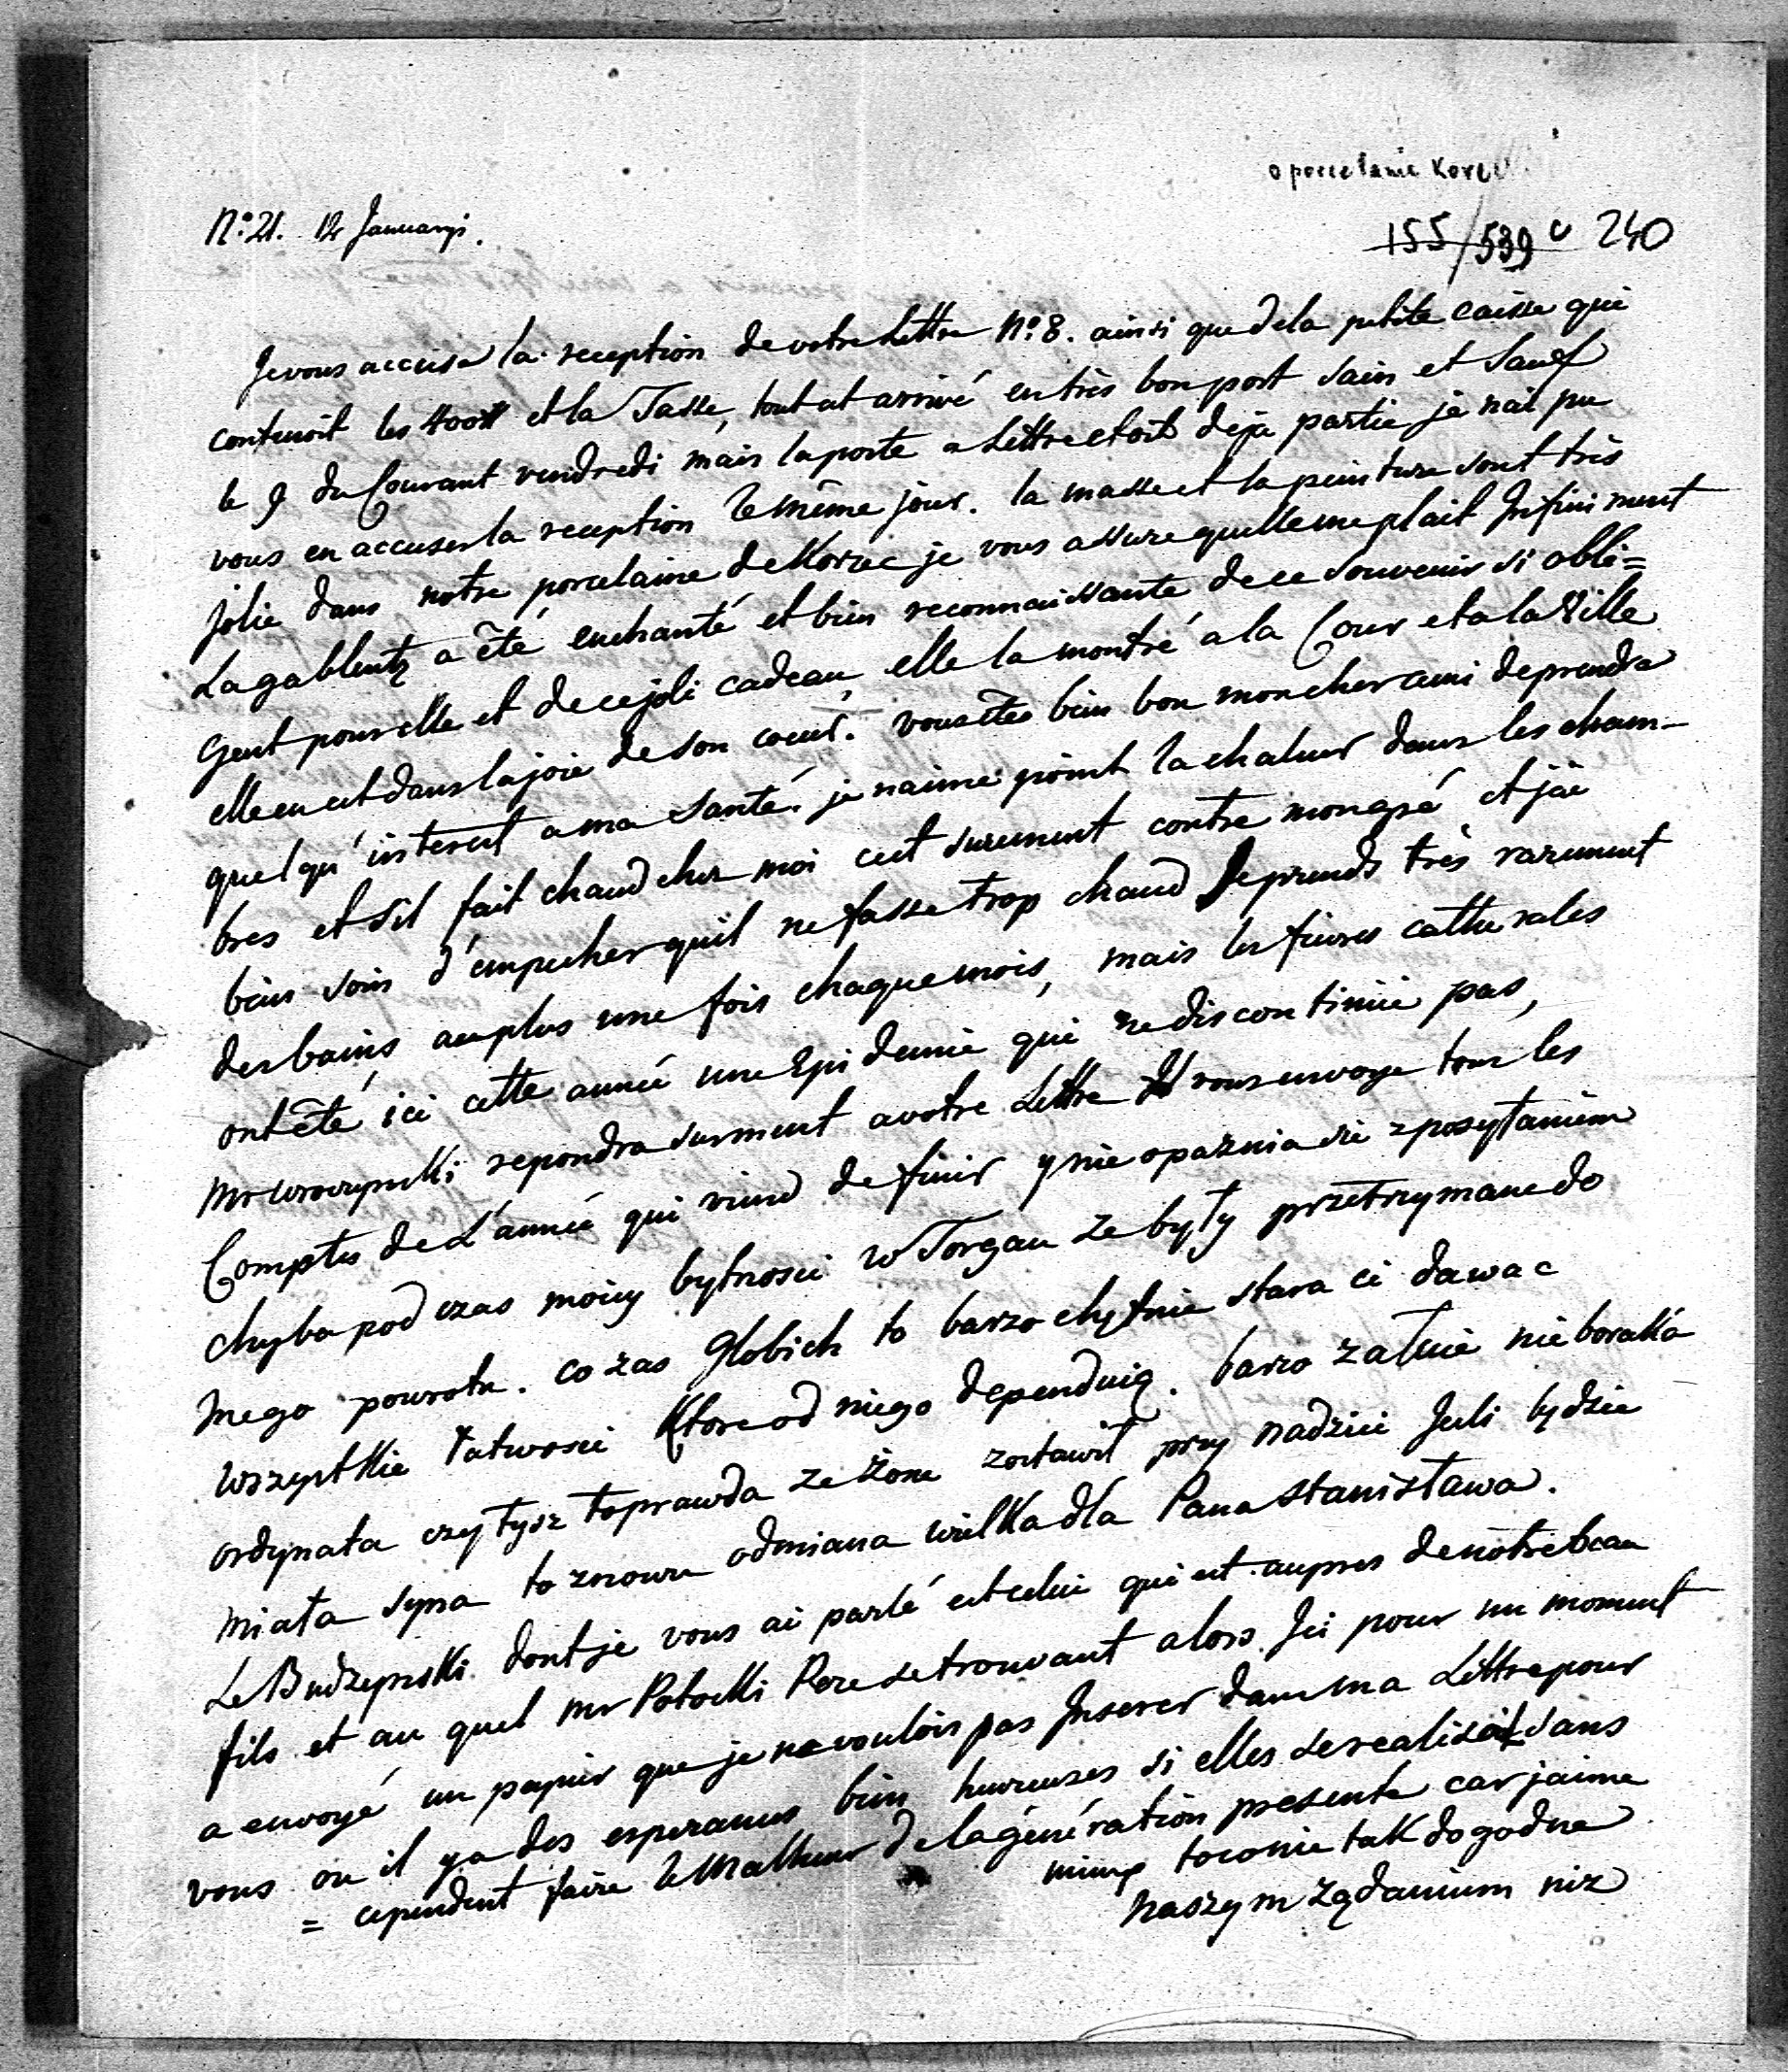 o porcelanie Korec
N.º 21. 12 Januarij.
155/539 c 240
Je vous accuse la reception de votre Lettre N.º 8. ainsi que de la petite caisse qui
contenoit les 400# et la Tasse, tout at arrivé en très bon port sain et Sauf
le 9 du Courant vendredi mais la poste a Lettre etoit deja partie je nai pu
vous en accuser la reception le même jour. la masse et la peinture sont très
jolie dans notre porcelaine de Korzec je vous assure quelle me plait Infiniment
La gablentz a êté enchanté et bien reconnaissante de ce souvenir si obli=
geent pour elle et de ce joli cadeau elle la montré a la Cour et a la Ville
elle en est dans la joie de son coeur. vous êtes bien bon mon cher ami de prendre
quelqu'interest a ma Santé. je naime point la chaleur dans les cham-
bres et s'il fait chaud chez moi cest surement contre mon gré et j'ai
bien soin d'empecher quil ne fasse trop chaud Je prends très rarement
des bains au plus une fois chaque mois, mais les fievres catherales
ont êté ici cette année une Epidemie qui ne discontinue pas,
Mr wroczynski repondra surment a votre Lettre Il vous envoye tous les
Comptes de L'année qui viend de finir y nie opaznia sie z posyłaniem
chyba pod czas moiey bytnosci w Torgau ze były przetrzymane do
mego powrotu. co zas Globich to barzo chętnie stara ci dawac
wszystkie łatwosci Ktore od niego dependuią. barzo załuie nieboraka
ordynata czytysz to prawda ze żone zostawił przy nadziei Jesli będzie
miała syna to znowu odmiana wielka dla Pana Stanisława.
Le Budzynski dont je vous ai parlé est celui qui est aupres de nôtre beau
fils et au quel mr Potocki Pere se trouvant alors Ici pour un moment
a envoyé un papier que je ne voulois pas Inserer dans ma Lettre pour
vous ou il y a des esperances bien heureuses si elles se realisoit sans
= cependent faire le Malheur de la génération presente car jaime
mieux to co nie tak dogodne
naszym ządaniom niz